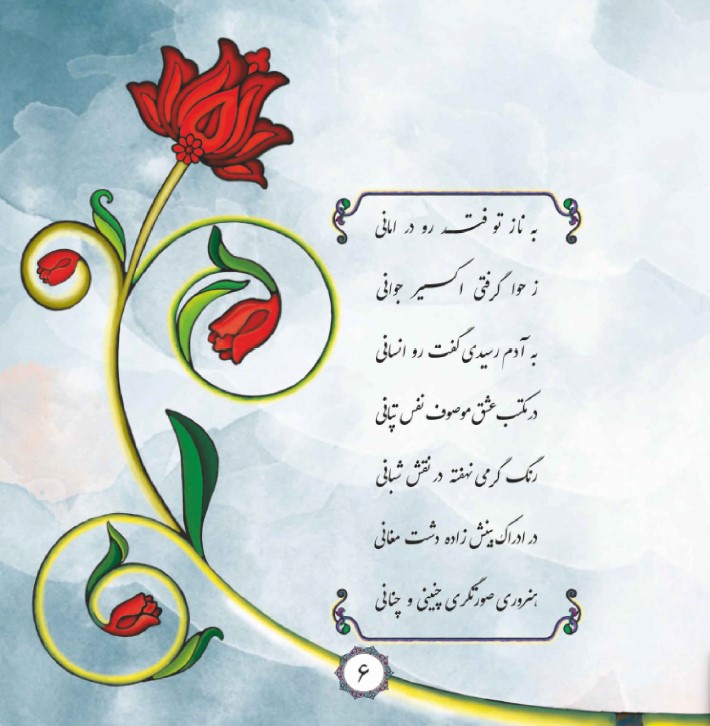 به ناز تو فتد رو در امانی
ز حوا گرفتی اکسیر جوانی
به آدم رسیدی گفت رو انسانی
در مکتب عشق موصوف نفس تپانی
رنگ گرمی نهفته در نقش شبانی
در ادراک بینش زاده دشت مغانی
هنروری صورتگری چنینی و چنانی
۶